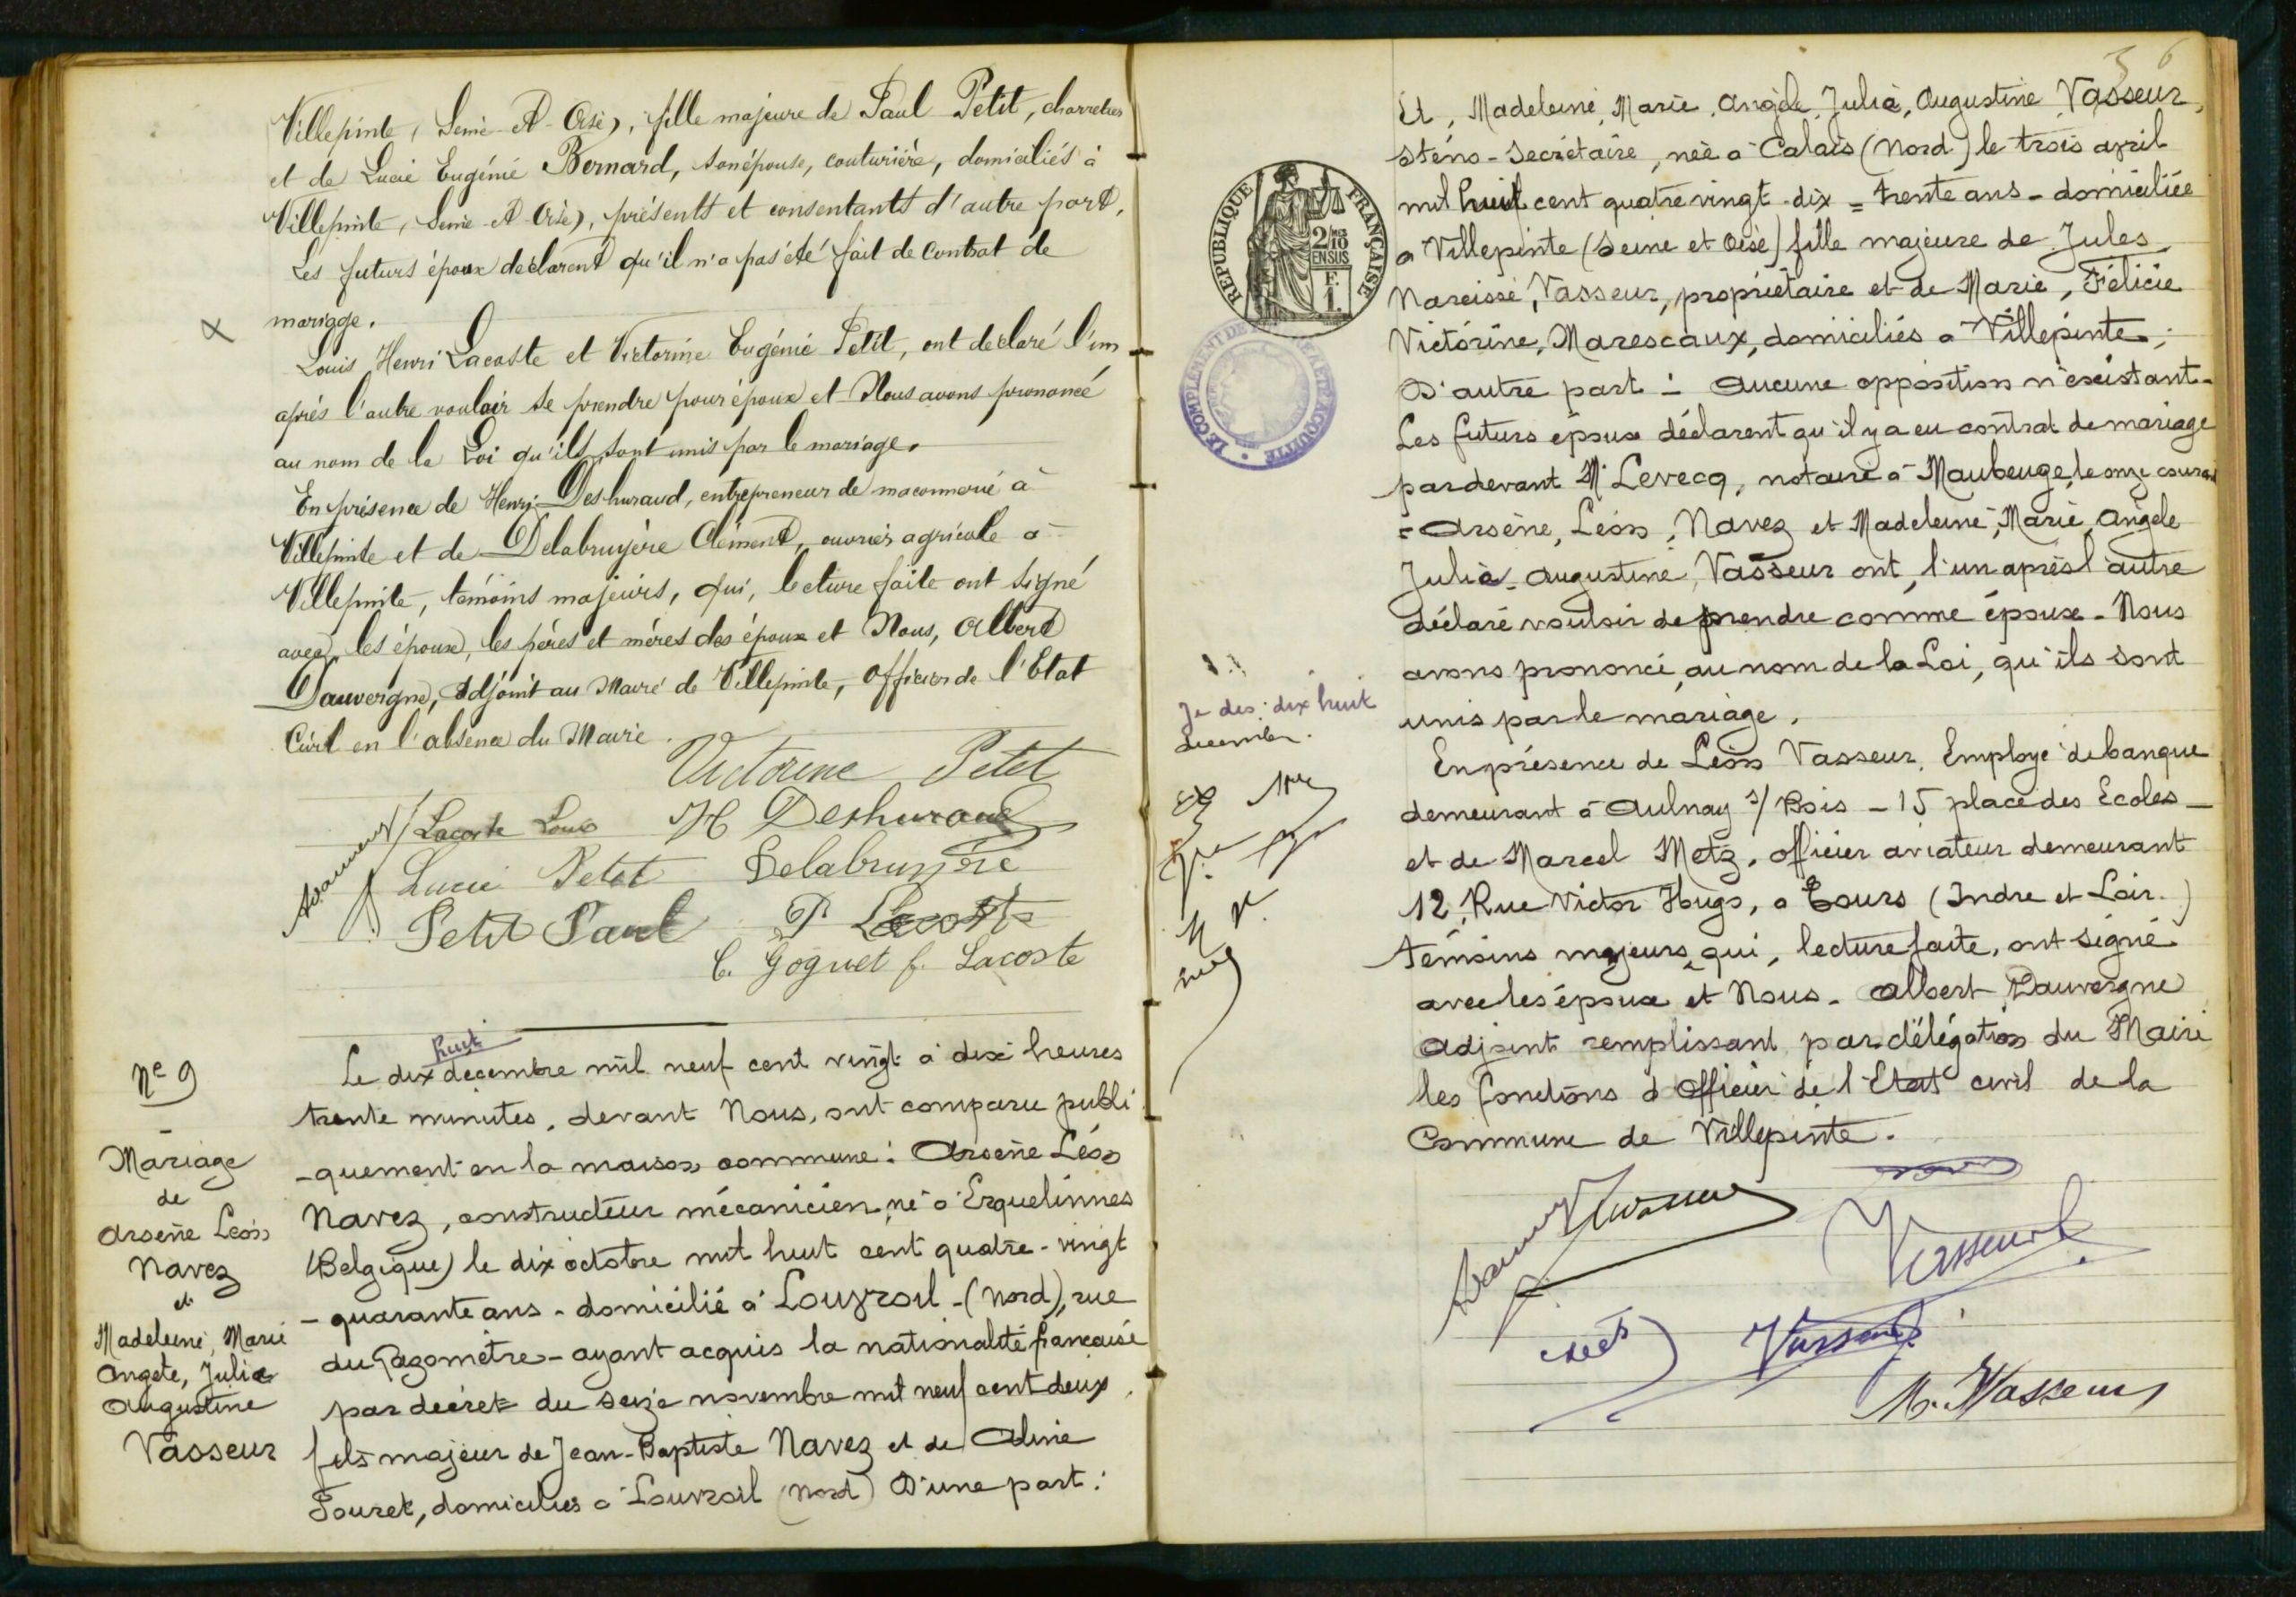 Villepinte, (Seine-et-Oise), fille majeure de Paul Petit, charretier
et de Lucie Eugénie Bernard, son épouse, couturière, domiciliés à
Villepinte, (Seine-et-Oise), présents et consentants d'autre part.
Les futurs époux déclarent qu'il n'a pas été fait de contrat de
mariage.
Louis Henri Lacoste et Victorine Eugénie Petit, ont déclaré l'un
après l'autre vouloir se prendre pour époux et Nous avons prononcé
au nom de la Loi qu'ils sont unis par le mariage.
En présence de Henri Deshuraud, entrepreneur de maconnerie à
Villepinte et de Delabruyère Clément, ouvrier agricole à
Villepinte, témoins majeurs, qui, lecture faite ont signé
avec les époux, les pères et mères des époux et Nous, Albert
Dauvergne, Adjoint au Maire de Villepinte, Officier de l'Etat
Civil en l'absence du Maire.
Victorine Petit
Lacoste Louis H Deshuraud
Lucie Petit Delabruyère
Petit Paul P Lacoste
C. Goguet f. Lacoste
Nº 9
Mariage
de
Arsène Léon
Navez
et
Madeleine, Marie
Angèle, Julia
Augustine
Vasseur
huit
Le dix décembre mil neuf cent vingt à dix heures
trente minutes, devant Nous, ont comparu publi
-quement en la maison commune : Arsène Léon
Navez, constructeur mécanicien, né à Erquelinnes
(Belgique) le dix octobre mil huit cent quatre-vingt
- quarante ans - domicilié à Louvroil - (Nord), rue
du Gazomètre - ayant acquis la nationalité française
par décret du seize novembre mil neuf cent deux,
fils majeur de Jean-Baptiste Navez et de Aline
Pouret, domiciliés à Louvroil (Nord) D'une part :
36
Et, Madeleine, Marie, Angèle, Julia, Augustine, Vasseur,
sténo-secrétaire, née à Calais (Nord) le trois avril
mil huit cent quatre vingt-dix = trente ans - domiciliée
à Villepinte (Seine et Oise) fille majeure de Jules
Narcisse, Vasseur, propriétaire et de Marie, Félicie
Victorine, Marescaux, domiciliés à Villepinte,
D'autre part : Aucune opposition n'existant.
Les futurs époux déclarent qu'il y a eu contrat de mariage
pardevant M. Levecq, notaire à Maubeuge, le onze courant
= Arsène, Léon, Navez et Madeleine, Marie, Angèle
Julia, Augustine, Vasseur ont, l'un après l'autre
déclaré vouloir se prendre comme époux. Nous
avons prononcé, au nom de la Loi, qu'ils sont
unis par le mariage.
En présence de Léon Vasseur, Employé de banque
demeurant à Aulnay s/ Bois - 15 place des Ecoles -
et de Marcel Metz, officier aviateur demeurant
12, Rue Victor Hugo, à Tours (Indre et Loir.)
témoins majeurs, qui, lecture faite, ont signé
avec les époux et Nous. Albert Dauvergne
Adjoint remplissant par délégation du Maire
les fonctions d'Officier de l'Etat civil de la
Commune de Villepinte.
Vasseur
M. Vasseur
REPUBLIQUE FRANÇAISE
2/10
EN SUS
F.
1.
LE COMPLEMENT DE
A ETE ACQUITTE
Je dis : dix huit
décembre.